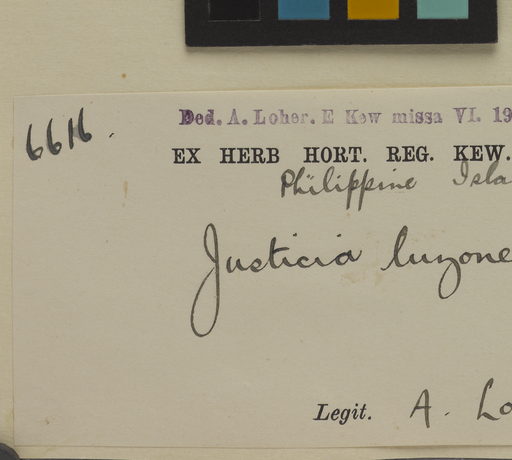 6616.
Ded. A. Loher. E Kew missa VI. 19
EX HERB HORT. REG. KEW.
Philippine Isla
Justicia luzone
Legit. A. Lo